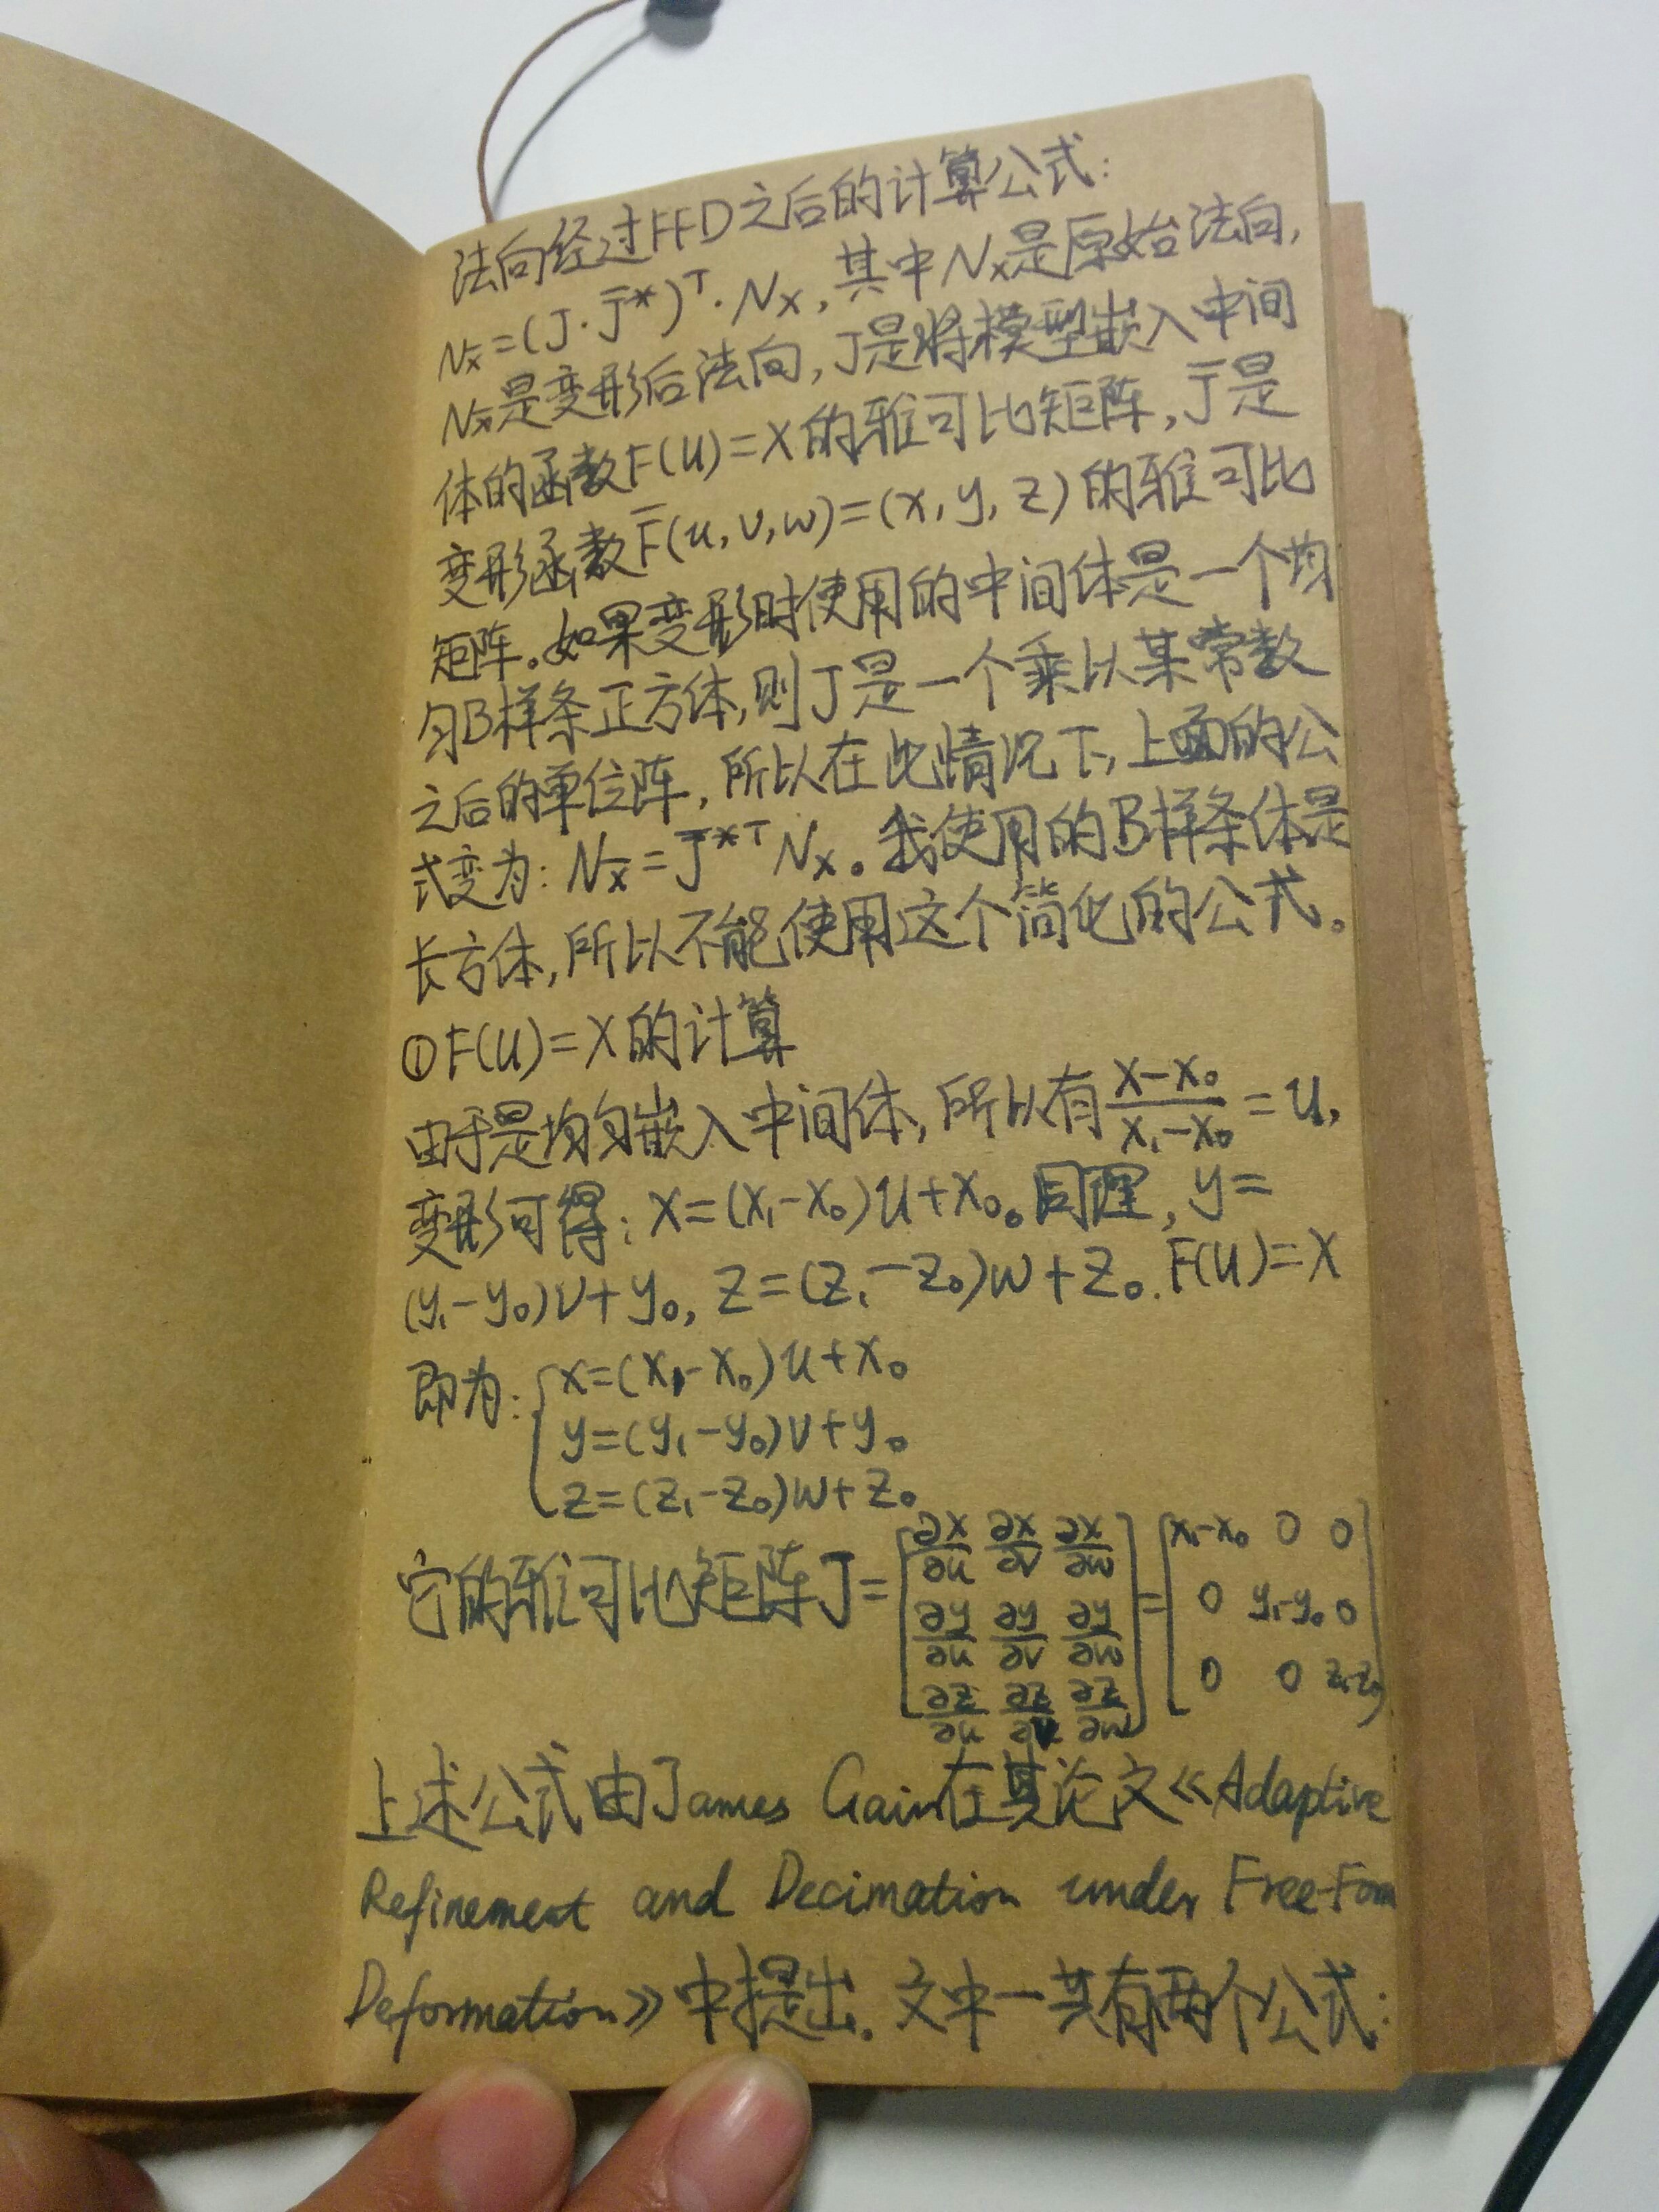 法向经过FFD之后的计算公式:
N_x̄=(J·J̄*)ᵀ·N_x,其中N_x是原始法向,
N_x̄是变形后法向,J是将模型嵌入中间
体的函数F(U)=X的雅可比矩阵,J̄是
变形函数F̄(u,v,w)=(x,y,z)的雅可比
矩阵。如果变形时使用的中间体是一个均
匀B样条正方体,则J是一个乘以某常数
之后的单位阵,所以在此情况下,上面的公
式变为:N_x̄=J̄*ᵀN_x。我使用的B样条体是
长方体,所以不能使用这个简化的公式。
①F(U)=X的计算
由于是均匀嵌入中间体,所以有(x-x₀)/(x₁-x₀)=u,
变形可得:x=(x₁-x₀)u+x₀。同理,y=
(y₁-y₀)v+y₀,z=(z₁-z₀)w+z₀.F(U)=X
即为:{x=(x₁-x₀)u+x₀
y=(y₁-y₀)v+y₀
z=(z₁-z₀)w+z₀
它的雅可比矩阵J=[∂x/∂u ∂x/∂v ∂x/∂w; ∂y/∂u ∂y/∂v ∂y/∂w; ∂z/∂u ∂z/∂v ∂z/∂w]=[x₁-x₀ 0 0; 0 y₁-y₀ 0; 0 0 z₁-z₀]
上述公式由James Gain在其论文《Adaptive
Refinement and Decimation under Free-Form
Deformation》中提出.文中一共有两个公式: